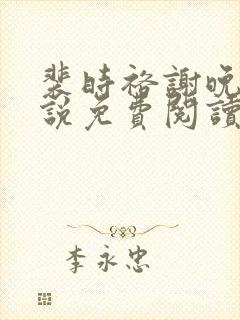 裴時裕謝晚
說免費閱讀
李永忠